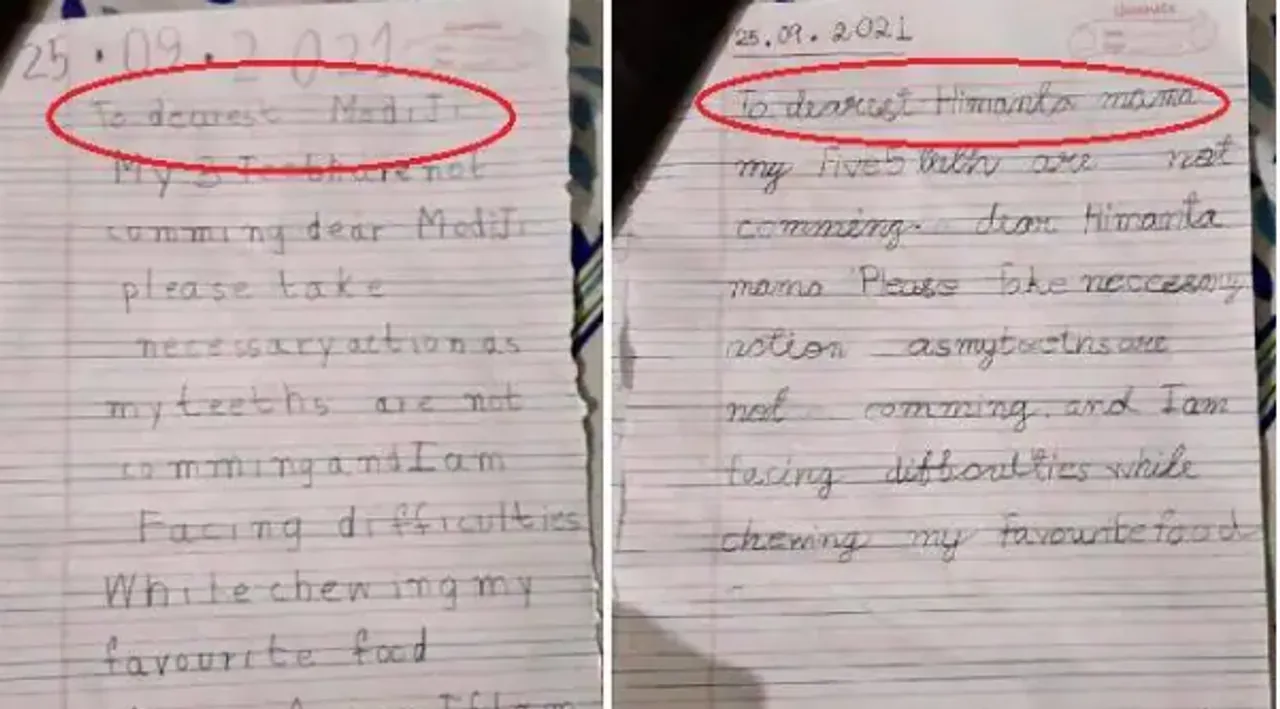 25.09.2021
To dearest ModiJi
My 3 Teeth are not
comming dear ModiJi
please take
necessary action as
my teeths are not
comming and I am
Facing difficulties
While chewing my
favourite food
25.09.2021
To dearest Himanta mama
my Five 5 teeth are not
comming. dear Himanta
mama Please Take neccessary
action as my teeths are
not comming. and I am
facing difficulties while
chewing my favourite food